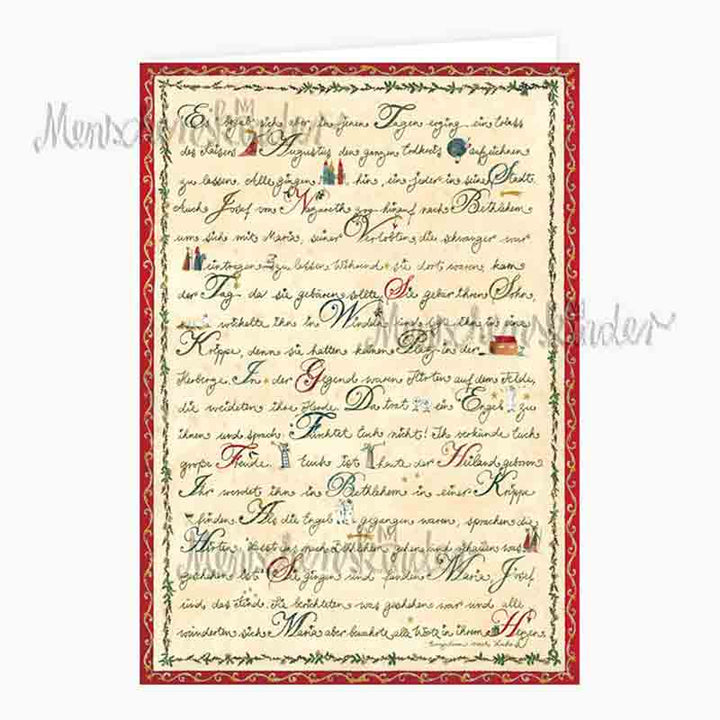 Es begab sich aber in jenen Tagen erging ein Erlass
des Kaisers Augustus den ganzen Erdkreis aufzeichnen
zu lassen. Alle gingen hin, ein jeder in seine Stadt.
Auch Josef von Nazareth zog hinauf nach Bethlehem
um sich mit Maria, seiner Verlobten, die schwanger war
eintragen zu lassen. Während sie dort waren, kam
der Tag da sie gebären sollte. Sie gebar ihren Sohn,
wickelte ihn in Windeln und legte ihn in eine
Krippe, denn sie hatten keinen Platz in der
Herberge. In der Gegend waren Hirten auf dem Felde,
die weideten ihre Herde. Da trat ein Engel zu
ihnen und sprach: Fürchtet Euch nicht! Ich verkünde Euch
große Freude. Euch ist heute der Heiland geboren
Ihr werdet ihn in Bethlehem in einer Krippe
finden. Als die Engel gegangen waren, sprachen die
Hirten: Lasst uns nach Bethlehem gehen und schauen was
geschehen ist. Sie gingen und fanden Maria, Josef
und das Kind. Sie berichteten was geschehen war und alle
wunderten sich. Maria aber bewahrte alle Worte in ihrem Herzen.
Evangelium nach Lukas
Menschenskinder
Menschenskinder
Menschenskinder